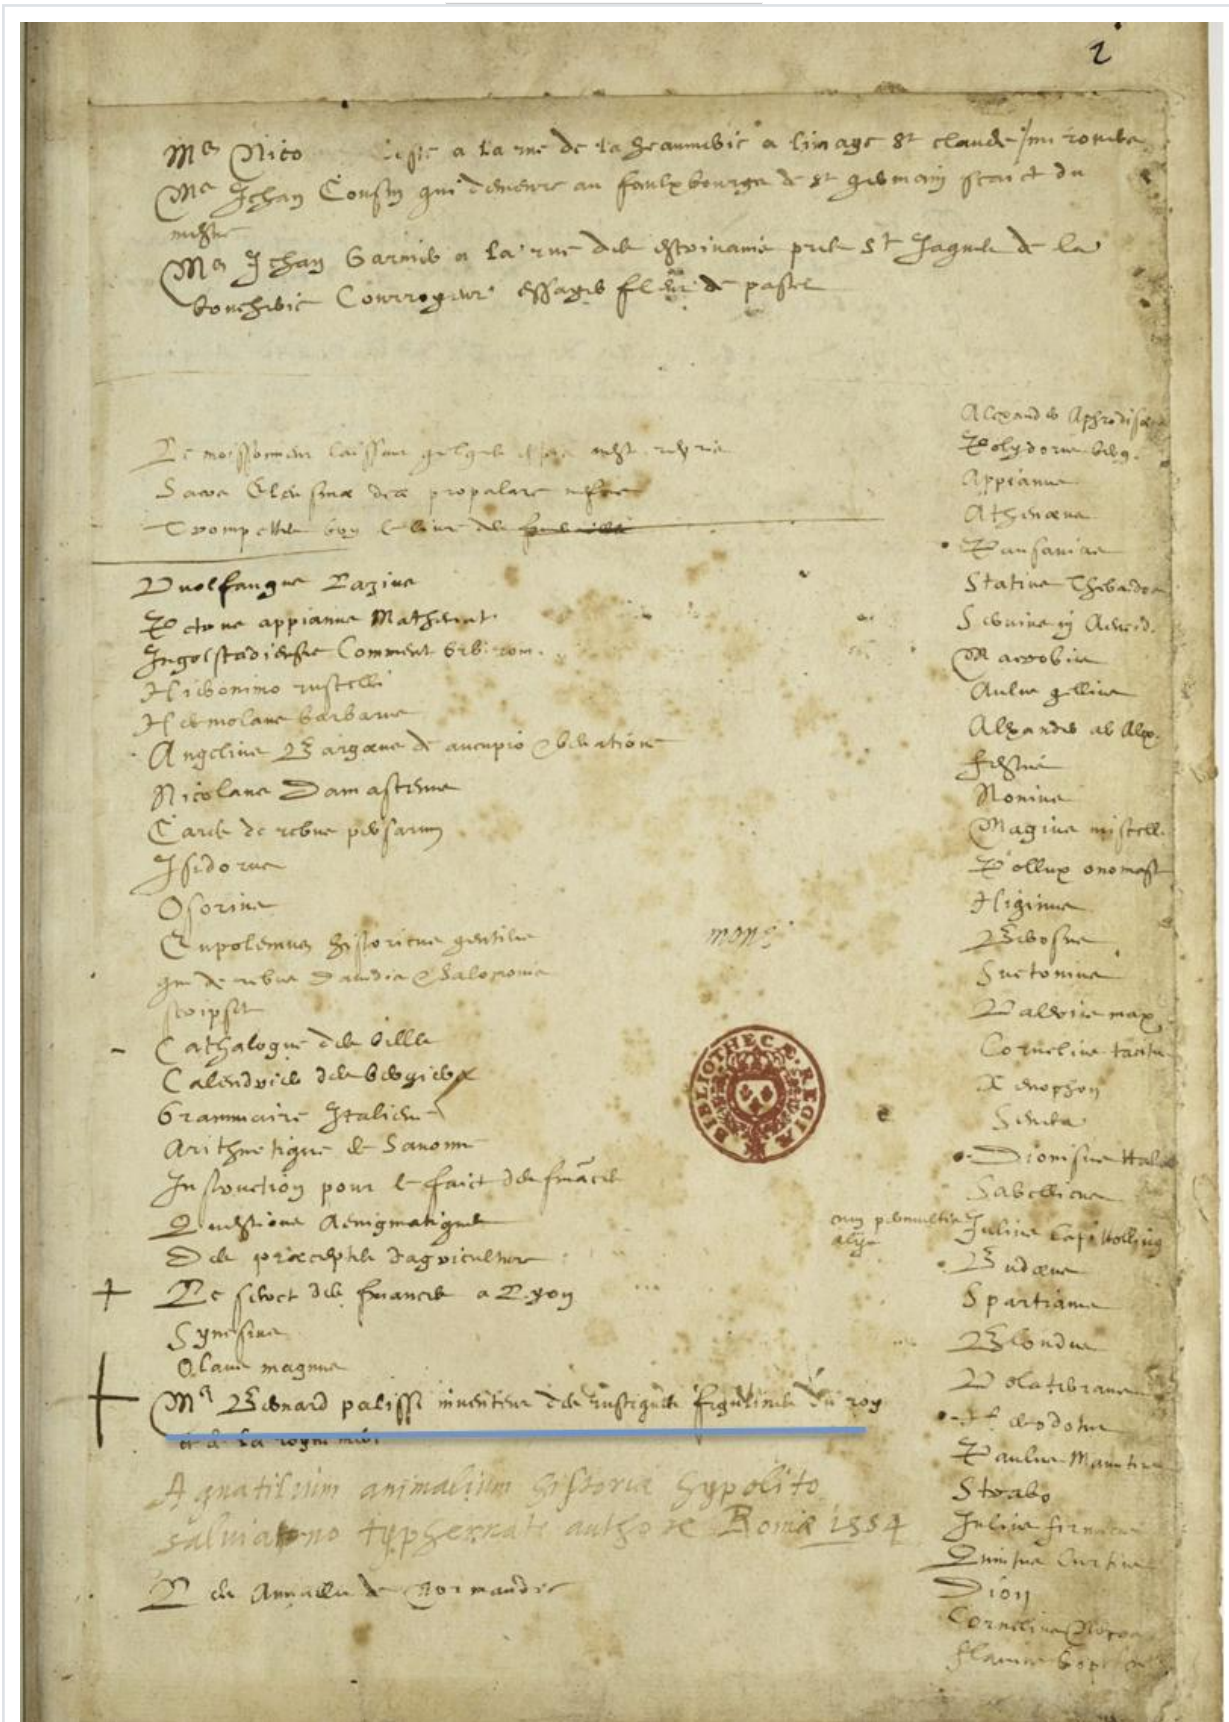 2
Me Nico a la rue de la heaumerie a limage St claude
Me Jehan Cousin qui demeure au faulxbourgs de St germain scaict du
mestre
Me Jehan Garnier a la rue des estrivains pres St Jaques de la
boucherie Courrogeur essayes fleur de pastel
Le moissonneur laissant
Sacra Eleusinæ deæ propalare nefas
Trompette
Vuolfangus Lazius
Petrus appianus Mathemat.
Ingolstadiensis Comment urb. rom.
Hieronimo ruscelli
Hermolaus barbarus
Angelius Bargæus de aucupio & venatione
Nicolaus Damascenus
Cares de rebus persarum
Isidorus
Osorius
Eupolemus historicus gentilis
qui de rebus Davidis & Salomonis
scripsit
mons.
Cathalogue des villes
Calendrier des bergiers
Grammaire Italiene
Arithmetique de Savonne
Instruction pour le faict des finances
Questions Aenigmatiques
Des præceptes dagriculture
Le secret des finances a Lyon
Synesius
Olaus magnus
Me Bernard palissi inventeur des rustiques figulines du roy
et de la royne mere
Aquatilium animalium historia hypolito
salviano typhernate authore Romæ 1554
Les Annalles de Normandie
Alexander Aphrodise
Polydorus verg.
Appianus
Athenæus
Pausanias
Statius Thebaidos
Servius in Aeneid.
Macrobius
Aulus gellius
Alexander ab Alex.
festus
Nonius
Magius miscell.
Pollux onomast
Higinus
Berosus
Suetonius
Valerius max
Cornelius tacitus
Xenophon
Seneca
Dionisius Hala
Sabellicus
cum permultis
aliis
Julius Capitollinus
Budæus
Spartianus
Blondus
Volaterranus
Herodotus
Paulus Manutius
Strabo
Julius firmicus
Quintus Curtius
Dion
Cornelius Nepos
flavius vopiscus
BIBLIOTHECÆ REGIÆ